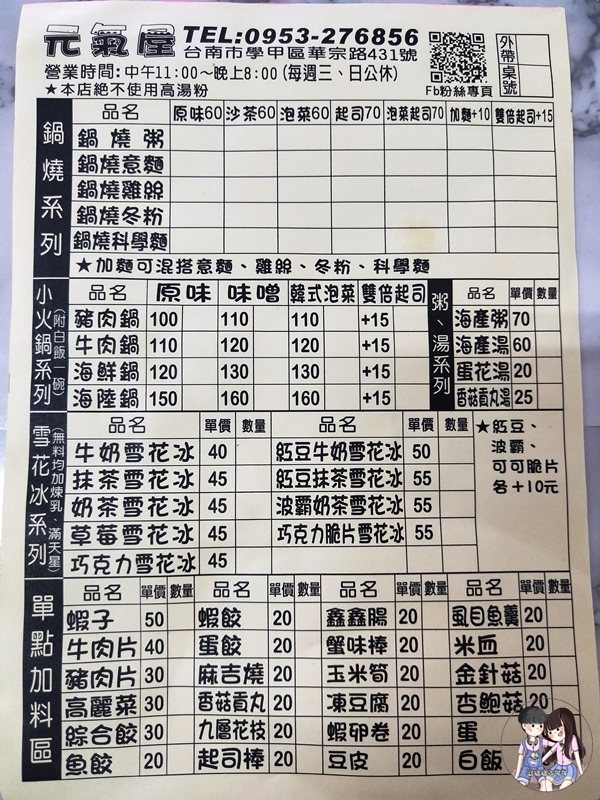 元氣屋 TEL:0953-276856
台南市學甲區華宗路431號
營業時間:中午11:00~晚上8:00(每週三、日公休)
★本店絕不使用高湯粉
Fb粉絲專頁
外帶
桌號
鍋燒系列
品名 原味60 沙茶60 泡菜60 起司70 泡菜起司70 加麵+10 雙倍起司+15
鍋燒粥
鍋燒意麵
鍋燒雞絲
鍋燒冬粉
鍋燒科學麵
★加麵可混搭意麵、雞絲、冬粉、科學麵
小火鍋系列(附白飯一碗)
品名 原味 味噌 韓式泡菜 雙倍起司
豬肉鍋 100 110 110 +15
牛肉鍋 110 120 120 +15
海鮮鍋 120 130 130 +15
海陸鍋 150 160 160 +15
粥、湯系列
品名 單價 數量
海產粥 70
海產湯 60
蛋花湯 20
香菇貢丸湯 25
雪花冰系列(無料均加煉乳、滿天星)
品名 單價 數量 品名 單價 數量
牛奶雪花冰 40 紅豆牛奶雪花冰 50
抹茶雪花冰 45 紅豆抹茶雪花冰 55
奶茶雪花冰 45 波霸奶茶雪花冰 55
草莓雪花冰 45 巧克力脆片雪花冰 55
巧克力雪花冰 45
★紅豆、
波霸、
可可脆片
各+10元
單點加料區
品名 單價 數量 品名 單價 數量 品名 單價 數量 品名 單價 數量
蝦子 50 蝦餃 20 鑫鑫腸 20 虱目魚羹 20
牛肉片 40 蛋餃 20 蟹味棒 20 米血 20
豬肉片 30 麻吉燒 20 玉米筍 20 金針菇 20
高麗菜 30 香菇貢丸 20 凍豆腐 20 杏鮑菇 20
綜合餃 30 九層花枝 20 蝦卵卷 20 蛋
魚餃 20 起司棒 20 豆皮 20 白飯